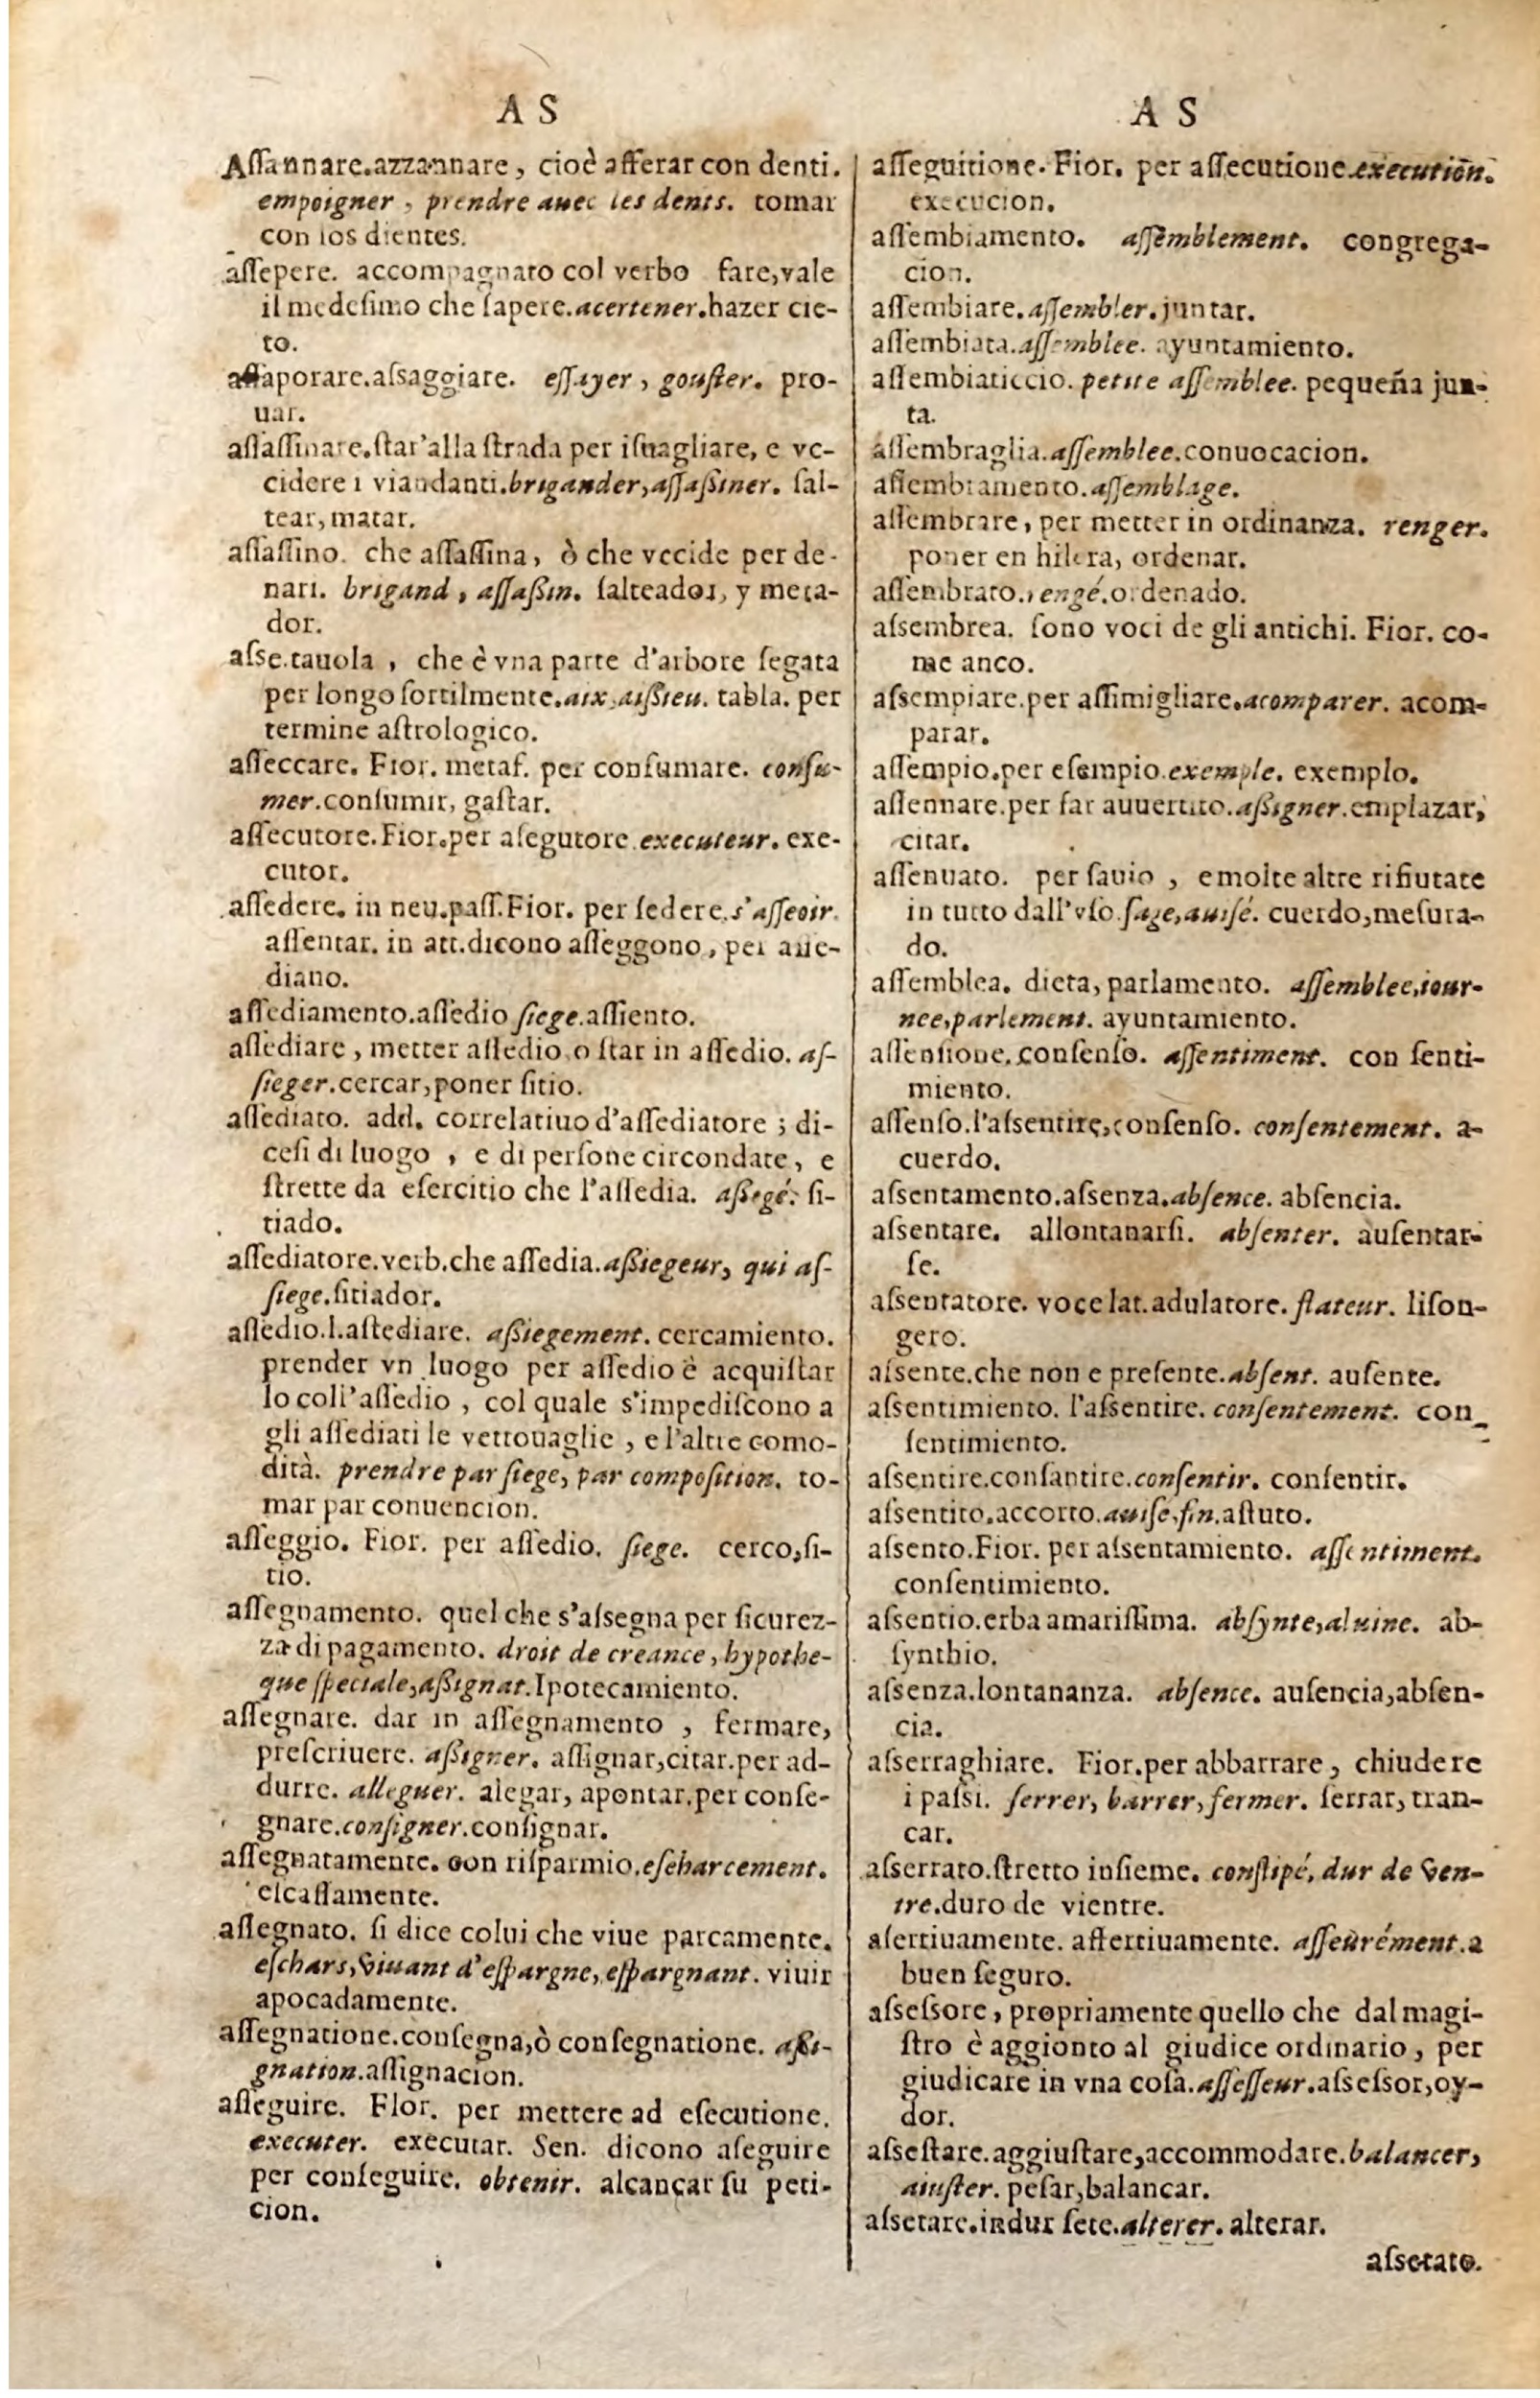 A S
Aſſannare.azzannare, cioè afferar con denti.
empoigner, prendre auec les dents. tomar
con los dientes.
aſſepere. accompagnato col verbo fare,vale
il medeſimo che ſapere.acertener.hazer cie-
to.
aſſaporare.aſsaggiare. eſſayer, gouſter. pro-
uar.
aſſaſſinare.ſtar'alla ſtrada per iſuagliare, e vc-
cidere i viandanti.brigander,aſſaßiner. ſal-
tear,matar.
aſſaſſino. che aſſaſſina, ò che vccide per de-
nari. brigand, aſſaßin. ſalteador, y meta-
dor.
aſse.tauola, che è vna parte d'arbore ſegata
per longo ſortilmente.aix,aißieu. tabla. per
termine aſtrologico.
aſſeccare. Fior. metaf. per conſumare. conſu-
mer.conſumir, gaſtar.
aſſecutore.Fior.per aſegutore.executeur. exe-
cutor.
aſſedere. in neu.paſſ.Fior. per ſedere.s'aſſeoir.
aſſentar. in att.dicono aſſeggono, per aſſe-
diano.
aſſediamento.aſſedio ſiege.aſſiento.
aſſediare, metter aſſedio o ſtar in aſſedio. aſ-
ſieger.cercar,poner ſitio.
aſſediato. add. correlatiuo d'aſſediatore ; di-
ceſi di luogo, e di perſone circondate, e
ſtrette da eſercitio che l'aſſedia. aßiegé. ſi-
tiado.
aſſediatore.verb.che aſſedia.aßiegeur, qui aſ-
ſiege.ſitiador.
aſſedio.l.aſſediare. aßiegement. cercamiento.
prender vn luogo per aſſedio è acquiſtar
lo coll'aſſedio, col quale s'impediſcono a
gli aſſediati le vettouaglie, e l'altre como-
dità. prendre par ſiege, par compoſition. to-
mar par conuencion.
aſſeggio. Fior. per aſſedio. ſiege. cerco,ſi-
tio.
aſſegnamento. quel che s'aſsegna per ſicurez-
za di pagamento. droit de creance, hypothe-
que ſpeciale,aßignat.Ipotecamiento.
aſſegnare. dar in aſſegnamento, fermare,
preſcriuere. aßigner. aſſignar,citar.per ad-
durre. alleguer. alegar, apontar.per conſe-
gnare.conſigner.conſignar.
aſſegnatamente. con riſparmio.eſcharcement.
eſcaſſamente.
aſſegnato. ſi dice colui che viue parcamente.
eſchars,viuant d'eſpargne,eſpargnant. viuir
apocadamente.
aſſegnatione.conſegna,ò conſegnatione. aßi-
gnation.aſſignacion.
aſſeguire. Flor. per mettere ad eſecutione.
executer. executar. Sen. dicono aſeguire
per conſeguire. obtenir. alcançar ſu peti-
cion.
A S
aſſeguitione. Fior. per aſſecutione.execution.
execucion.
aſſembiamento. aſſemblement. congrega-
cion.
aſſembiare.aſſembler.juntar.
aſſembiata.aſſemblee. ayuntamiento.
aſſembiaticcio. petite aſſemblee. pequeña jun-
ta.
aſſembraglia.aſſemblee.conuocacion.
aſſembramento.aſſemblage.
aſſembrare, per metter in ordinanza. renger.
poner en hilera, ordenar.
aſſembrato.rengé.ordenado.
aſsembrea. ſono voci de gli antichi. Fior. co-
me anco.
aſsempiare.per aſſimigliare.acomparer. acom-
parar.
aſſempio.per eſempio.exemple. exemplo.
aſſennare.per far auuertito.aßigner.emplazar,
citar.
aſſennato. per ſauio, e molte altre rifiutate
in tutto dall'vſo.ſage,auiſé. cuerdo,meſura-
do.
aſſemblea. dieta, parlamento. aſſemblee,iour-
nee,parlement. ayuntamiento.
aſſenſione.conſenſo. aſſentiment. con ſenti-
miento.
aſſenſo.l'aſsentire,conſenſo. conſentement. a-
cuerdo.
aſsentamento.aſsenza.abſence. abſencia.
aſsentare. allontanarſi. abſenter. auſentar-
ſe.
aſsentatore. voce lat.adulatore. flateur. liſon-
gero.
aſsente.che non e preſente.abſent. auſente.
aſsentimiento. l'aſsentire. conſentement. con_
ſentimiento.
aſsentire.conſantire.conſentir. conſentir.
aſsentito.accorto.auiſé,fin.aſtuto.
aſsento.Fior. per aſsentamiento. aſſentiment.
conſentimiento.
aſsentio.erba amariſſima. abſynte,aluine. ab-
ſynthio.
aſsenza.lontananza. abſence. auſencia,abſen-
cia.
aſserraghiare. Fior.per abbarrare, chiudere
i paſsi. ſerrer, barrer,fermer. ſerrar,tran-
car.
aſserrato.ſtretto inſieme. conſtipé, dur de ven-
tre.duro de vientre.
aſertiuamente. aſſertiuamente. aſſeùrément.a
buen ſeguro.
aſseſsore, propriamente quello che dal magi-
ſtro è aggionto al giudice ordinario, per
giudicare in vna coſa.aſſeſſeur.aſseſsor,oy-
dor.
aſseſtare.aggiuſtare,accommodare.balancer,
aiuſter. peſar,balancar.
aſsetare.indur ſete.alterer. alterar.
aſsetato.